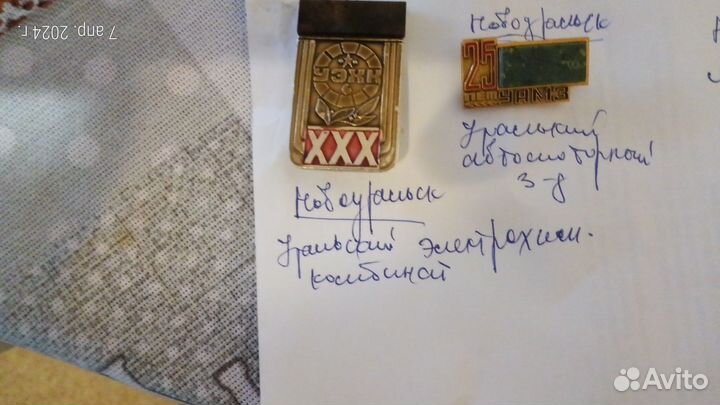 7 апр. 2024 г.
УЭХК
XXX
Новоуральск
Уральский электрохим.
комбинат
Новоуральск
25
ЛЕТ УАМЗ
Уральский
автомоторный
з-д
Avito